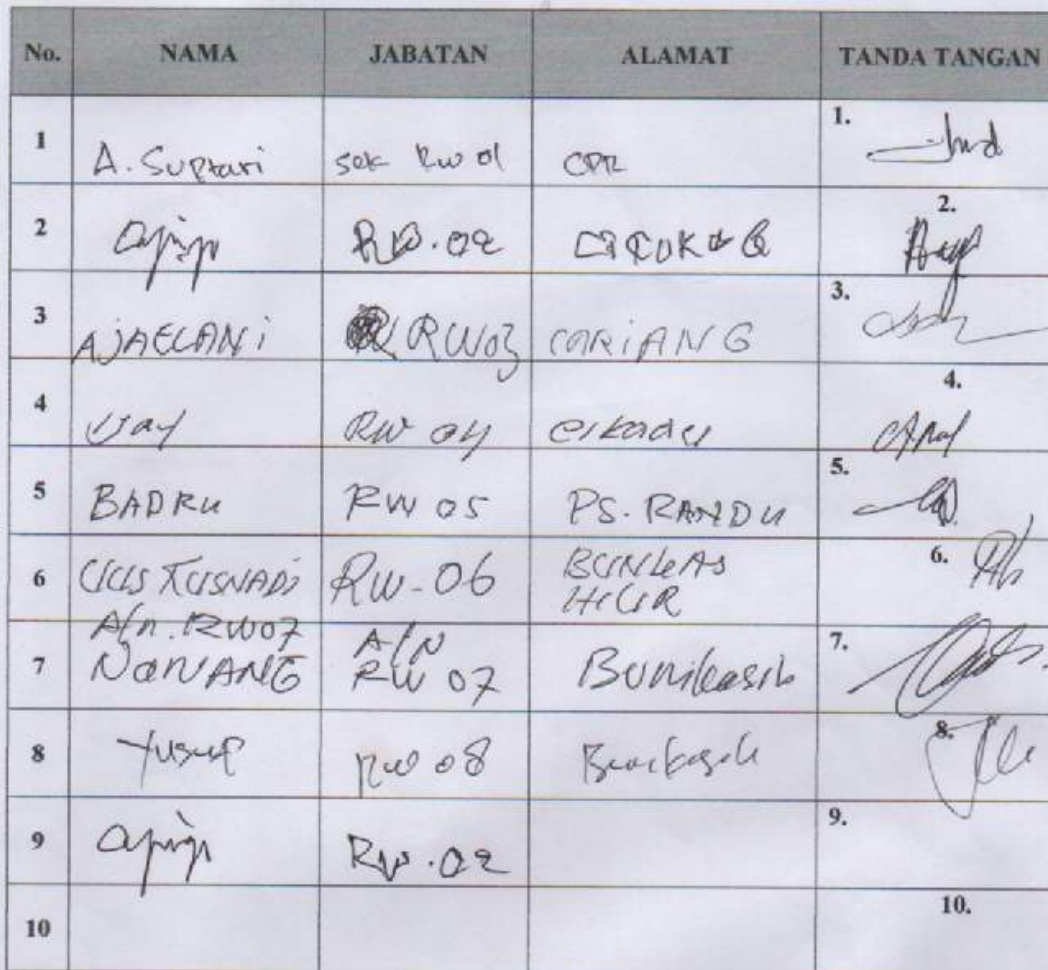 No. NAMA JABATAN ALAMAT TANDA TANGAN
1 A. Suptari sek RW 01 CPR 1.
2 RW.02 2.
3 AJAELANI RW03 CARIANG 3.
4 RW 04 4.
5 BADRU RW 05 PS. RANDU 5.
6 UUS KUSNADI RW-06 BUNIKAS HILIR 6.
A/n. RW07 A/N
7 NANANG RW 07 Bunikasih 7.
8 Yusup RW 08 Bunikasih 8.
9 RW.02 9.
10 10.